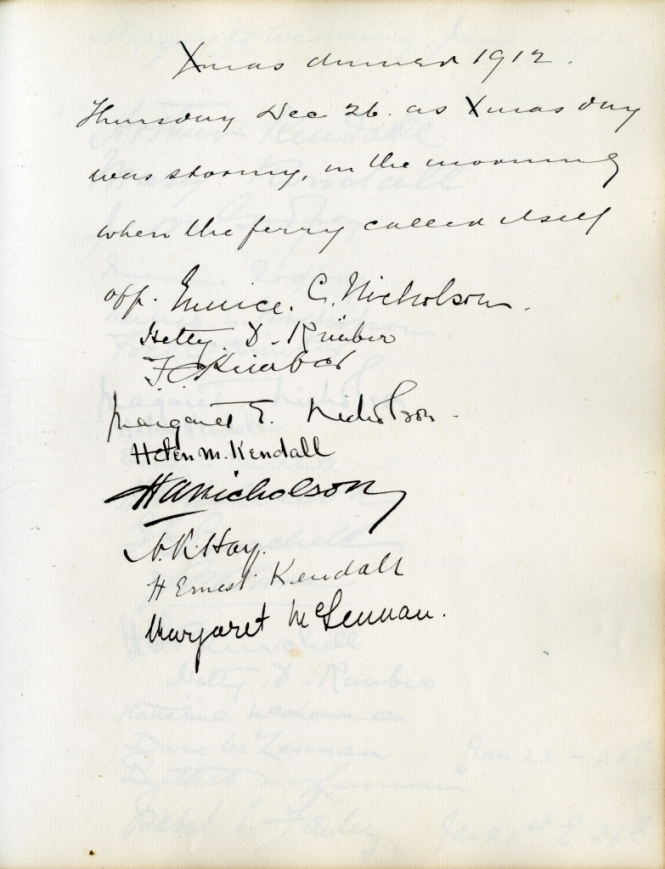 Xmas dinner 1912.
Thursday Dec 26. as Xmas day
was stormy, in the morning
when the ferry called itself
off. Eunice. C. Nicholson.
Hetty D.
F.C.
Margaret E. Nicholson.
Helen M. Kendall
HA Nicholson
Hay.
H Ernest Kendall
Margaret McLennan.